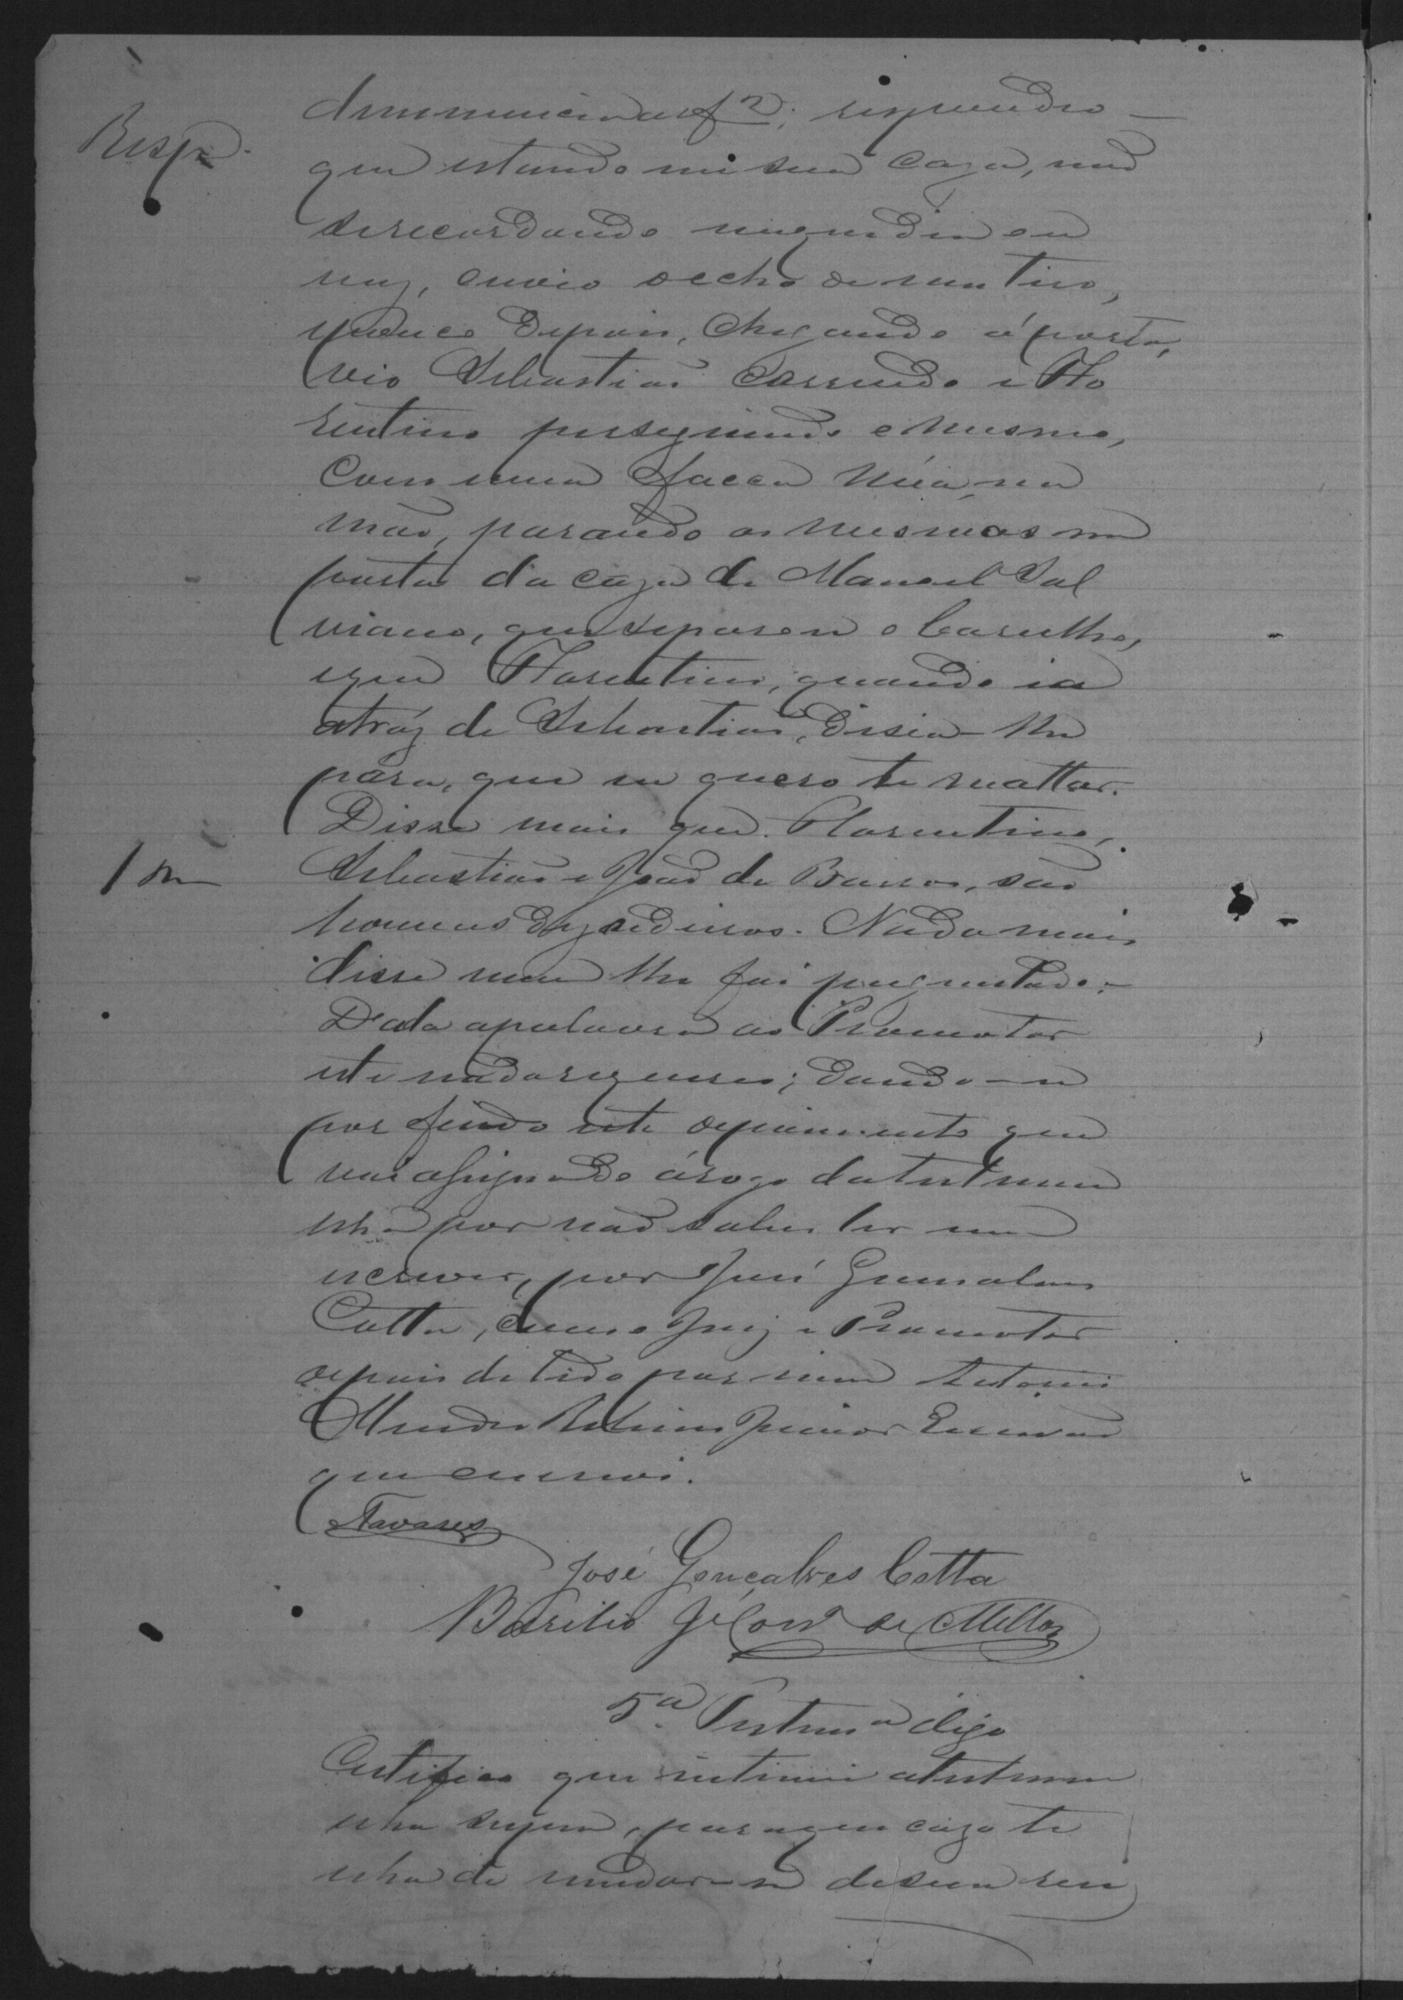 denuncia de f 2; respondeo
Resp.
que estando em sua caza, não
se recordando em que dia ou
mez, ouvio o echo de um tiro,
pouco depois, chegando á porta,
vio Sebastião correndo e Flo
rentino perseguindo o mesmo,
com uma facca núa na
mão, parando os mesmos na
porta da caza de Manoel Sal
viano, que separou o barulho,
e que Florentino, quando ia
atráz de Sebastião, disia-lhe
para, que eu quero te mattar.
Disse mais que Florentino,
Sebastião e João de Barros, são
homens desordeiros. Nada mais
disse nem lhe foi perguntado.
Dada a palavra ao Promotor
este nada requereu; dando-se
por findo este depoimento que
vai assignado á rogo da testemu
nha por não saber ler nem
escrever, por José Gonsalves
Cotta, com o Juiz e Promotor
depois de lido por mim Antonio
Mendes Junior Escrivão
que escrevi.
Tavares
José Gonçalves Cotta
Basilio de Mello
5ª Testemª digo
Certifico que intimei a testemu
nha supra, para que cazo te
nha de mudar-se de sua resi